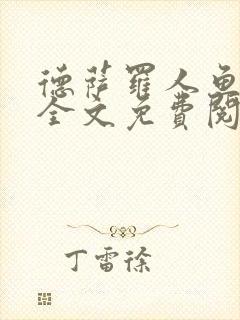 德萨罗人鱼
全文免费阅
丁雷徐